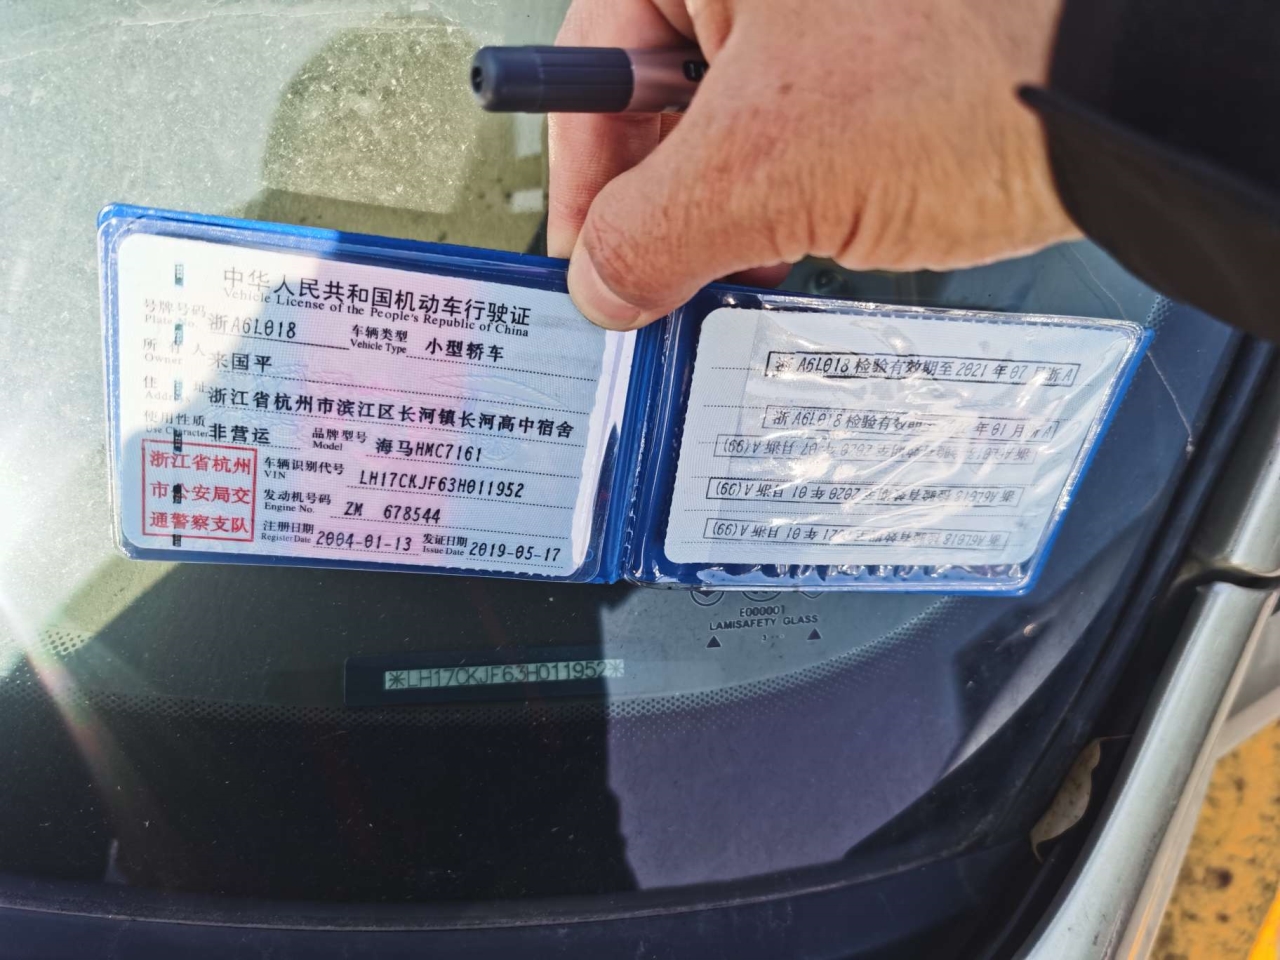 中华人民共和国机动车行驶证
Vehicle License of the People's Republic of China
号牌号码 浙A6L018 车辆类型 小型轿车
Plate No. Vehicle Type
所有人 来国平
Owner
住址 浙江省杭州市滨江区长河镇长河高中宿舍
使用性质 非营运 品牌型号 海马HMC7161
Use Character Model
浙江省杭州
市公安局交
通警察支队
车辆识别代号 LH17CKJF63H011952
VIN
发动机号码 ZM 678544
Engine No.
注册日期 2004-01-13 发证日期 2019-05-17
Register Date Issue Date
浙A6L018检验有效期至2021年07月浙A
浙A6L018检验有效
年01月
E000001
LAMISAFETY GLASS
*LH17CKJF63H011952*